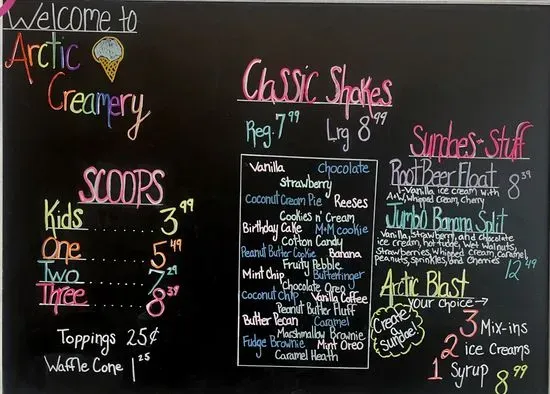 Welcome to
Arctic
Creamery
SCOOPS
Kids ........ 3.99
One ........ 5.49
Two ........ 7.29
Three ........ 8.39
Toppings 25¢
Waffle Cone 1.25
Classic Shakes
Reg. 7.99 Lrg 8.99
Vanilla Chocolate
Strawberry
Coconut Cream Pie Reeses
Cookies n' Cream
Birthday Cake M+M Cookie
Cotton Candy
Peanut Butter Cookie Banana
Fruity Pebble
Mint Chip Butterfinger
Chocolate Oreo
Coconut Chip Vanilla Coffee
Peanut Butter Fluff
Butter Pecan Caramel
Marshmallow Brownie
Fudge Brownie Mint Oreo
Caramel Heath
Sundaes & Stuff
Root Beer Float 8.39
1-Vanilla ice cream with
A+W, whipped cream, cherry
Jumbo Banana Split
Vanilla, Strawberry, and chocolate
ice cream, hot fudge, wet walnuts,
strawberries, whipped cream, caramel,
peanuts, sprinkles, and cherries 12.49
Arctic Blast
your choice →
Create
a
Sundae!
3 Mix-ins
2 ice creams
1 Syrup 8.99